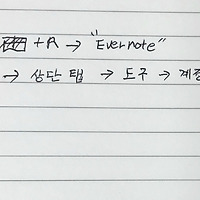 +R → "Evernote"
→ 상단 탭 → 도구 → 계정